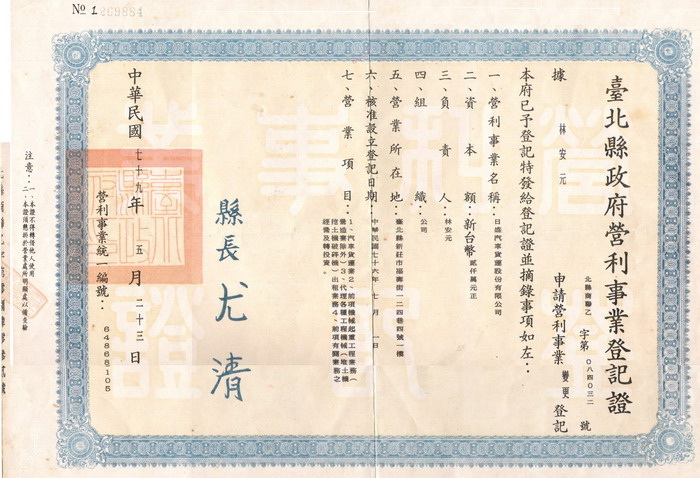 № 1269884
臺北縣政府營利事業登記證
北縣商聯乙 字第 〇八四〇三二 號
據 林安元 申請營利事業 變更 登記
本府已予登記特發給登記證並摘錄事項如左：
一、營利事業名稱：日盛汽車貨運股份有限公司
二、資本額：新台幣 貳仟萬元正
三、負責人：林安元
四、組織：公司
五、營業所在地：臺北縣新莊市福壽街一二四巷四號一樓
六、核准設立登記日期：中華民國七十六年 七月 一日
七、營業項目：1、汽車貨運業2、前項機械起重工程業務（
營造業除外）3、代理各種工程機械（堆土機
挖土機破碎機）出租業務4、前項有關業務之
經營及轉投資。
縣長 尤清
中華民國 七十九年 五月 二十三日
營利事業統一編號：64868105
注意：一、本證不得轉借他人使用
二、本證須懸掛於營業處所明顯處以備查驗